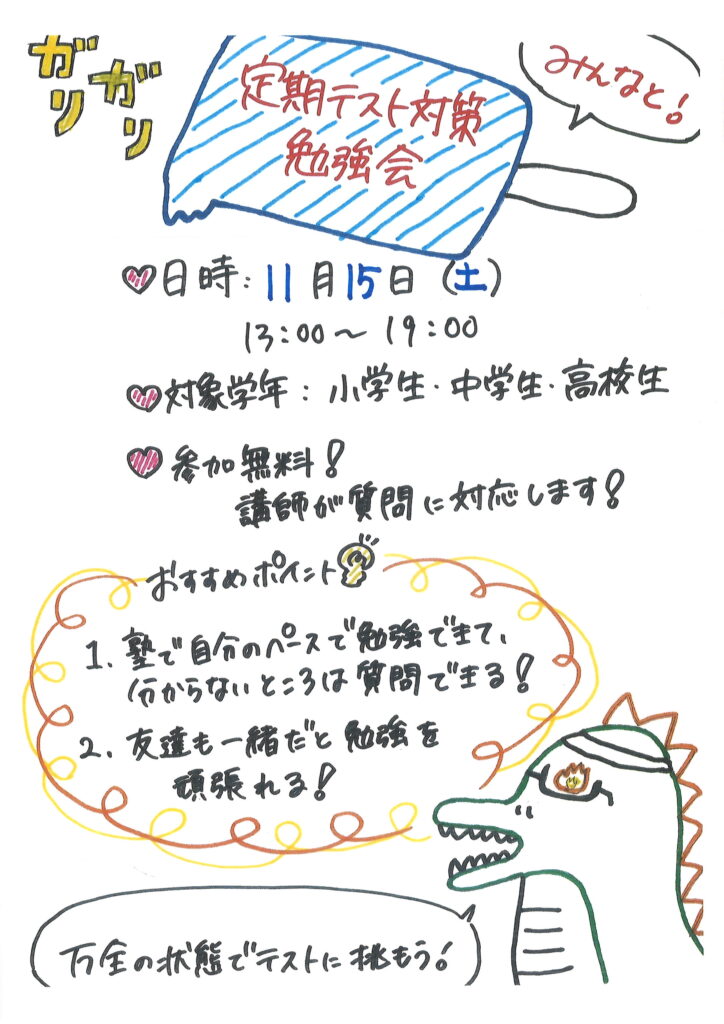 ガリガリ
みんなと!
定期テスト対策
勉強会
日時：11月15日（土）
13:00～19:00
対象学年：小学生・中学生・高校生
参加無料！
講師が質問に対応します！
おすすめポイント
1. 塾で自分のペースで勉強できて、
分からないところは質問できる！
2. 友達も一緒だと勉強を
頑張れる！
万全の状態でテストに挑もう！